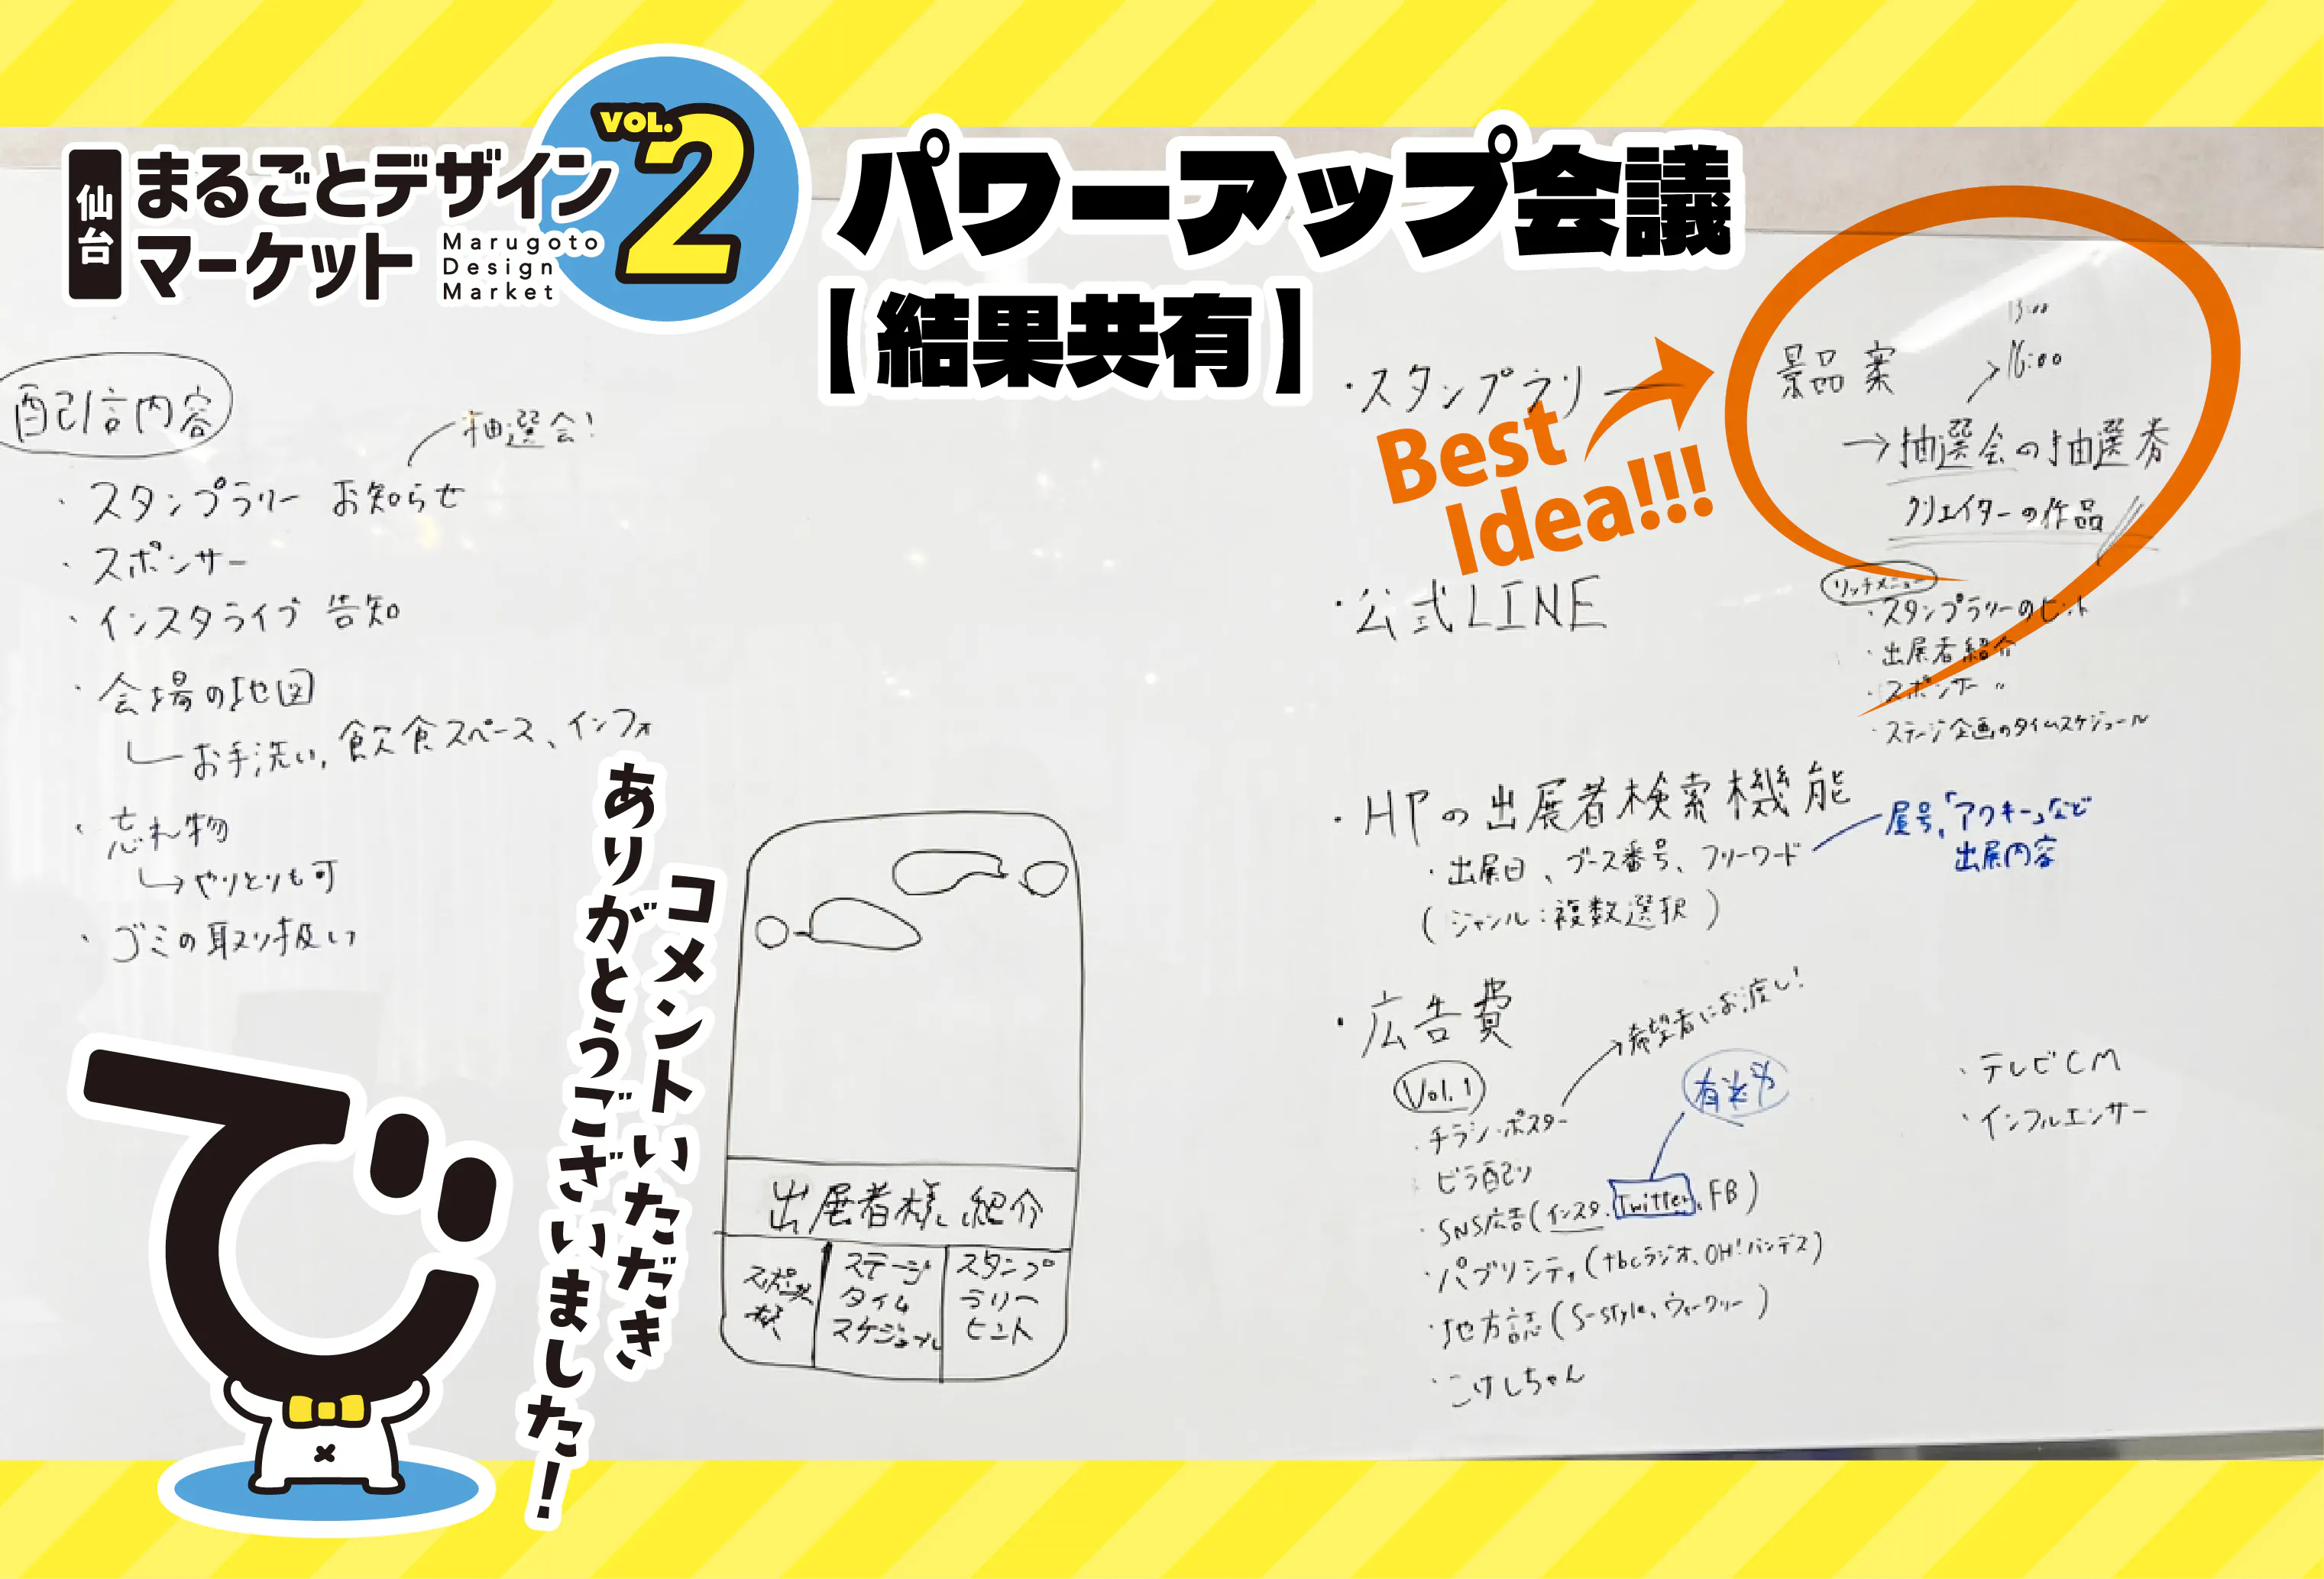 仙台
まるごとデザイン
マーケット
Marugoto
Design
Market
VOL.2
パワーアップ会議
【結果共有】
配信内容
抽選会!
・スタンプラリー お知らせ
・スポンサー
・インスタライブ 告知
・会場の地図
お手洗い、飲食スペース、インフォ
・忘れ物
→やりとりも可
・ゴミの取り扱い
コメントいただき
ありがとうございました!
で
出展者様紹介
ステージ
タイム
スケジュール
スタンプ
ラリー
ヒント
・スタンプラリ
Best
Idea!!!
景品案
16:00
→抽選会の抽選券
クリエイターの作品
・公式LINE
リッチメニュー
・スタンプラリーのヒント
・出展者紹介
・スポンサー 〃
・ステージ企画のタイムスケジュール
・HPの出展者検索機能
・出展日、ブース番号、フリーワード
(ジャンル:複数選択)
屋号、「アクキー」など
出展内容
・広告費
Vol.1
→希望者にお渡し!
・チラシ・ポスター
・ビラ配り
・SNS広告(インスタ、Twitter、FB)
・パブリシティ(tbcラジオ、OH!バンデス)
・地方誌(S-style、ウィークリー)
・こけしちゃん
・テレビCM
・インフルエンサー